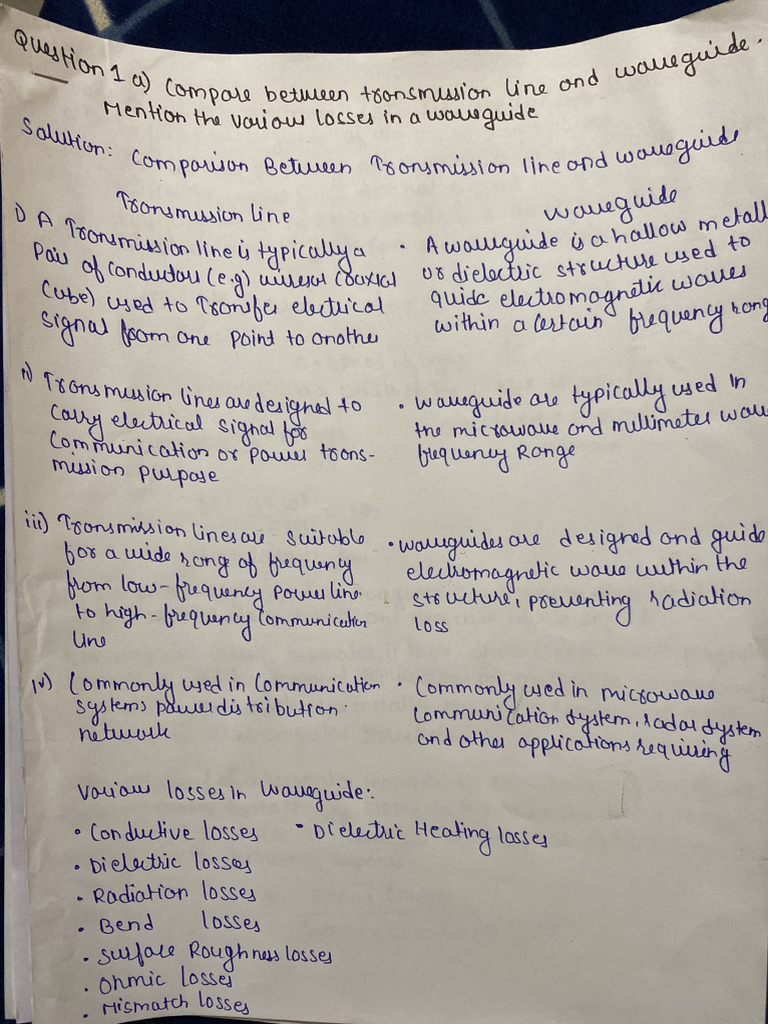 Question 1 a) Compare between transmission line and waveguide.
Mention the various losses in a waveguide
Solution: Comparison Between Transmission line and waveguide
Transmission line
i) A Transmission line is typically a
Pair of conductors (e.g)
used to Transfer electrical
signal from one point to another
ii) Transmission lines are designed to
carry electrical signal for
communication or power trans-
mission purpose
iii) Transmission lines are suitable
for a wide rang of frequency
from low-frequency power line
to high-frequency communication
line
iv) Commonly used in Communication
systems power distribution
network
Waveguide
• A waveguide is a hallow metall
or dielectric structure used to
guide electromagnetic waves
within a certain frequency rang
• waveguide are typically used in
the microwave and millimeter wav
frequency Range
• waveguides are designed and guide
electromagnetic wave within the
structure, preventing radiation
loss
• Commonly used in microwave
communication system, radar system
and other applications requiring
Various losses in Waveguide:
• Conductive losses • Dielectric Heating losses
• Dielectric losses
• Radiation losses
• Bend losses
• Surface Roughness losses
• Ohmic losses
• Mismatch losses